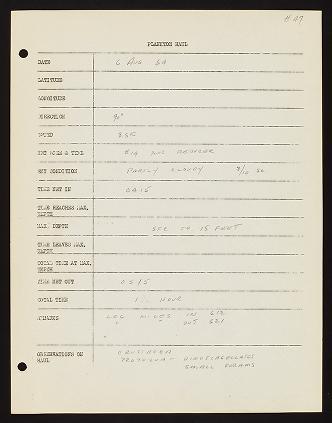 # 27
PLANKTON HAUL
DATE 6 AUG 64
LATITUDE
LONGITUDE
DIRECTION 90°
SPEED
NET SIZE & TYPE #14
SKY CONDITION PARTLY CLOUDY
TIME NET IN 0415
TIME REACHES MAX. DEPTH
MAX. DEPTH SFC TO 15 FEET
TIME LEAVES MAX. DEPTH
TOTAL TIME AT MAX. DEPTH
TIME NET OUT 0515
TOTAL TIME 1 HOUR
REMARKS LOG MILES IN 612
" " OUT 621
OBSERVATIONS ON HAUL CRUSTACEA
PROTOZOA - DINOFLAGELLATES
SMALL FORAMS